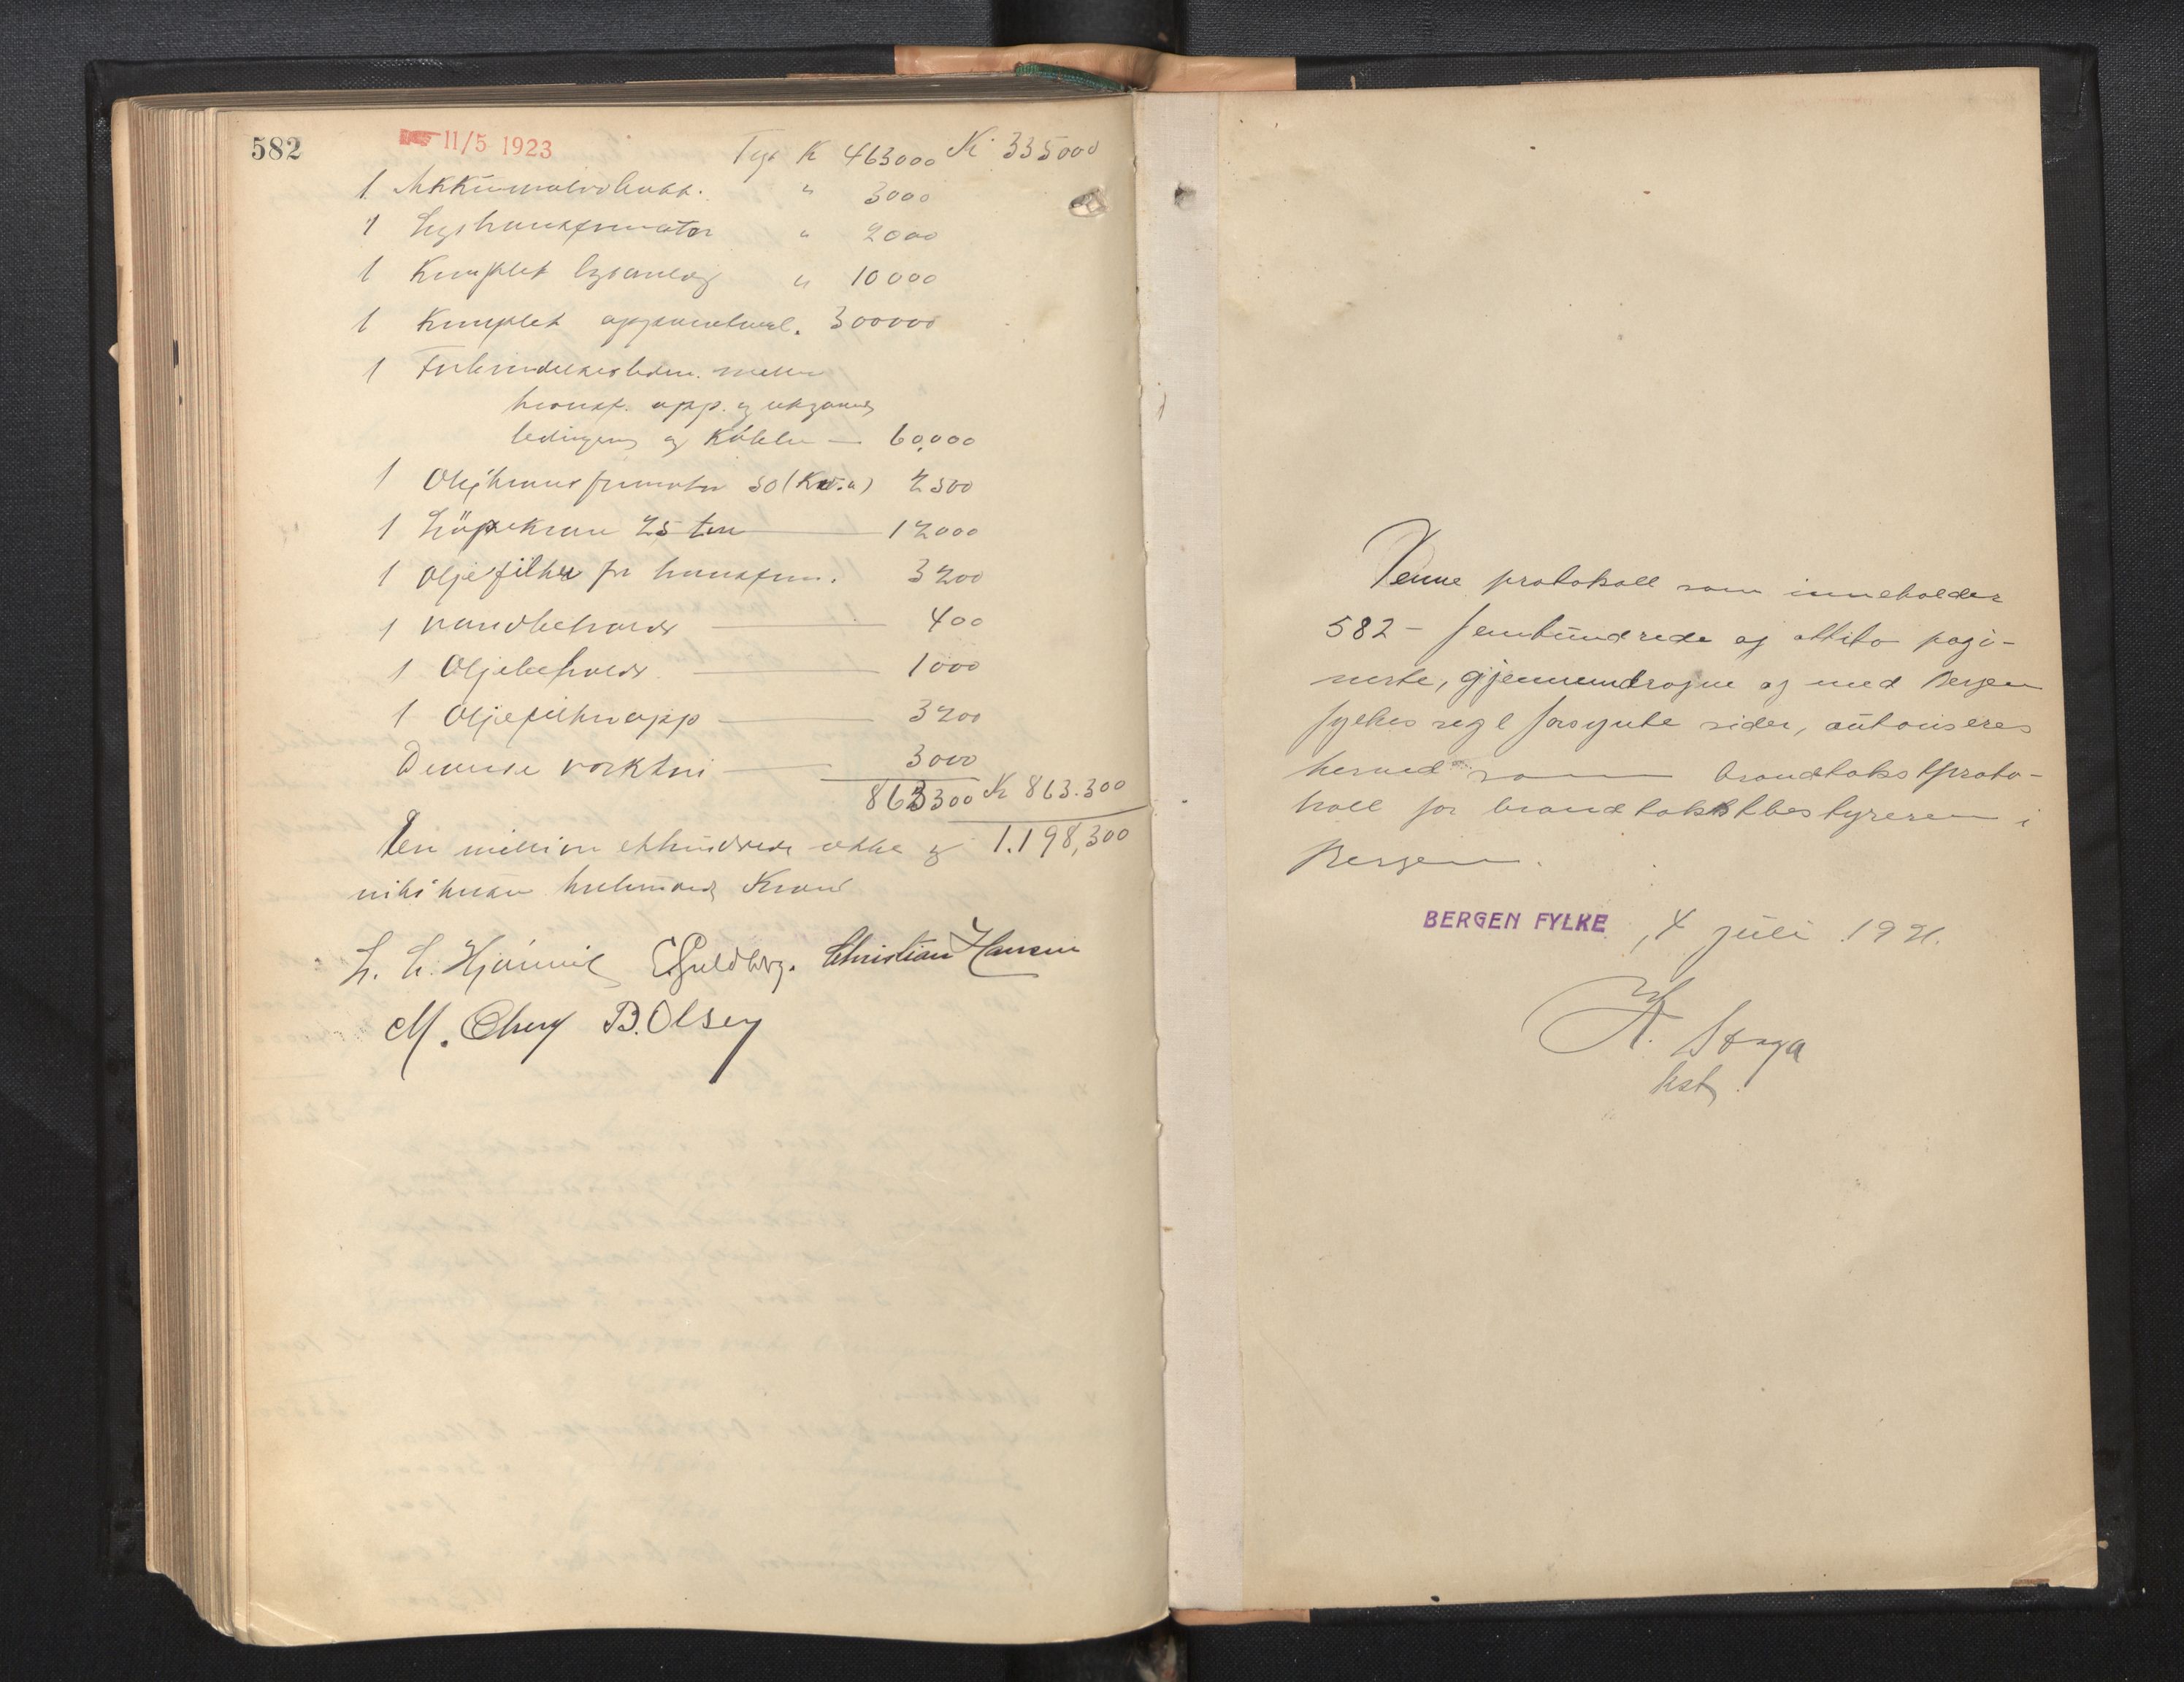 582 11/5 1923 K 463000 Kr 335000
1 Akkumulatorbatt. " 3000
1 Lystransformator " 2000
1 Komplet lysanlæg " 10000
1 Komplet apparattavl. 300000
1 Forbindelsesledn. mellem
transf. app. og utgaaende
ledninger og Kabler — 60,000
1 Oljetransformator 50 (Kv.a) 2500
1 Löpekran 25 ton — 12000
1 Oljefilter for transform. 3200
1 vandbeholder — 400
1 Oljebeholder — 1000
1 Oljefilterapp — 3200
Diverse verktøi — 3000
863300 Kr 863.300
En million ethundrede otte og 1.198,300
nitti tusen trehundrede Kroner
E. Guldbrg. Christian Hansen
M. B. Olsen
Denne protokoll som inneholder
582 - femhundrede og åttito pagi-
nerte, gjennemdragne og med Bergen
fylkes segl forsynte sider, autoriseres
herved som brandtakstproto-
koll for brandtakstbestyreren i
Bergen.
BERGEN FYLKE, 4 juli 1921.
K.
kst.